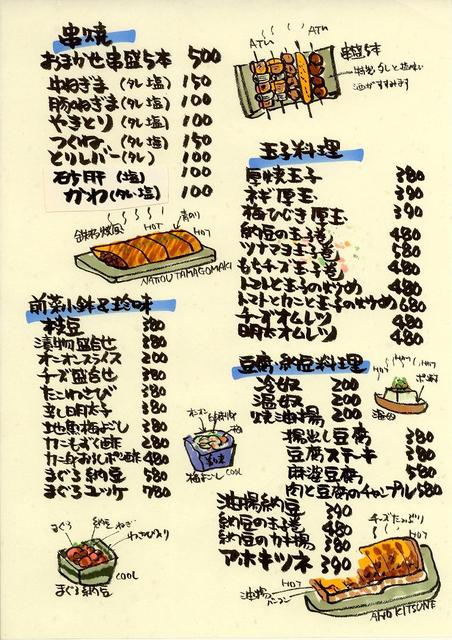 串焼
おまかせ串盛5本 500
串ねぎま(タレ塩) 150
豚ねぎま(タレ塩) 100
やきとり(タレ塩) 100
つくね(タレ塩) 150
とりレバー(タレ) 100
砂肝(塩) 100
かわ(タレ塩) 100
鉄板焼風
HOT
青のり
HOT
NATTOU TAMAGOMAKI
前菜小鉢&珍味
枝豆 380
漬物盛合せ 380
オニオンスライス 200
チーズ盛合せ 380
たこわさび 380
辛し明太子 380
地魚梅おろし 380
カニもずく酢 280
カニ身おろしポン酢 480
まぐろ納豆 580
まぐろユッケ 780
まぐろ
納豆
ねぎ
わさび入り
COOL
まぐろ納豆
ATU
ATU
串盛5本
特製タレと塩味い
酒がすすみます
玉子料理
厚焼玉子 380
ネギ厚玉 390
梅ひじき厚玉 390
納豆の玉子巻 480
ツナマヨ玉子巻 580
もちチーズ玉子巻 480
トマトと玉子の炒め 480
トマトとカニと玉子の炒め 680
チーズオムレツ 480
明太オムレツ 480
豆腐・納豆料理
冷奴 200
温奴 200
焼油揚 200
揚出し豆腐 380
豆腐ステーキ 380
麻婆豆腐 580
肉と豆腐のチャンプル 580
油揚納豆 390
納豆の玉子巻 480
納豆のカキ揚 380
アホキツネ 390
オニオン
梅
COOL
HOT
HOT
ポン酢
チーズたっぷり
HOT
HOT
油揚
AHO KITSUNE